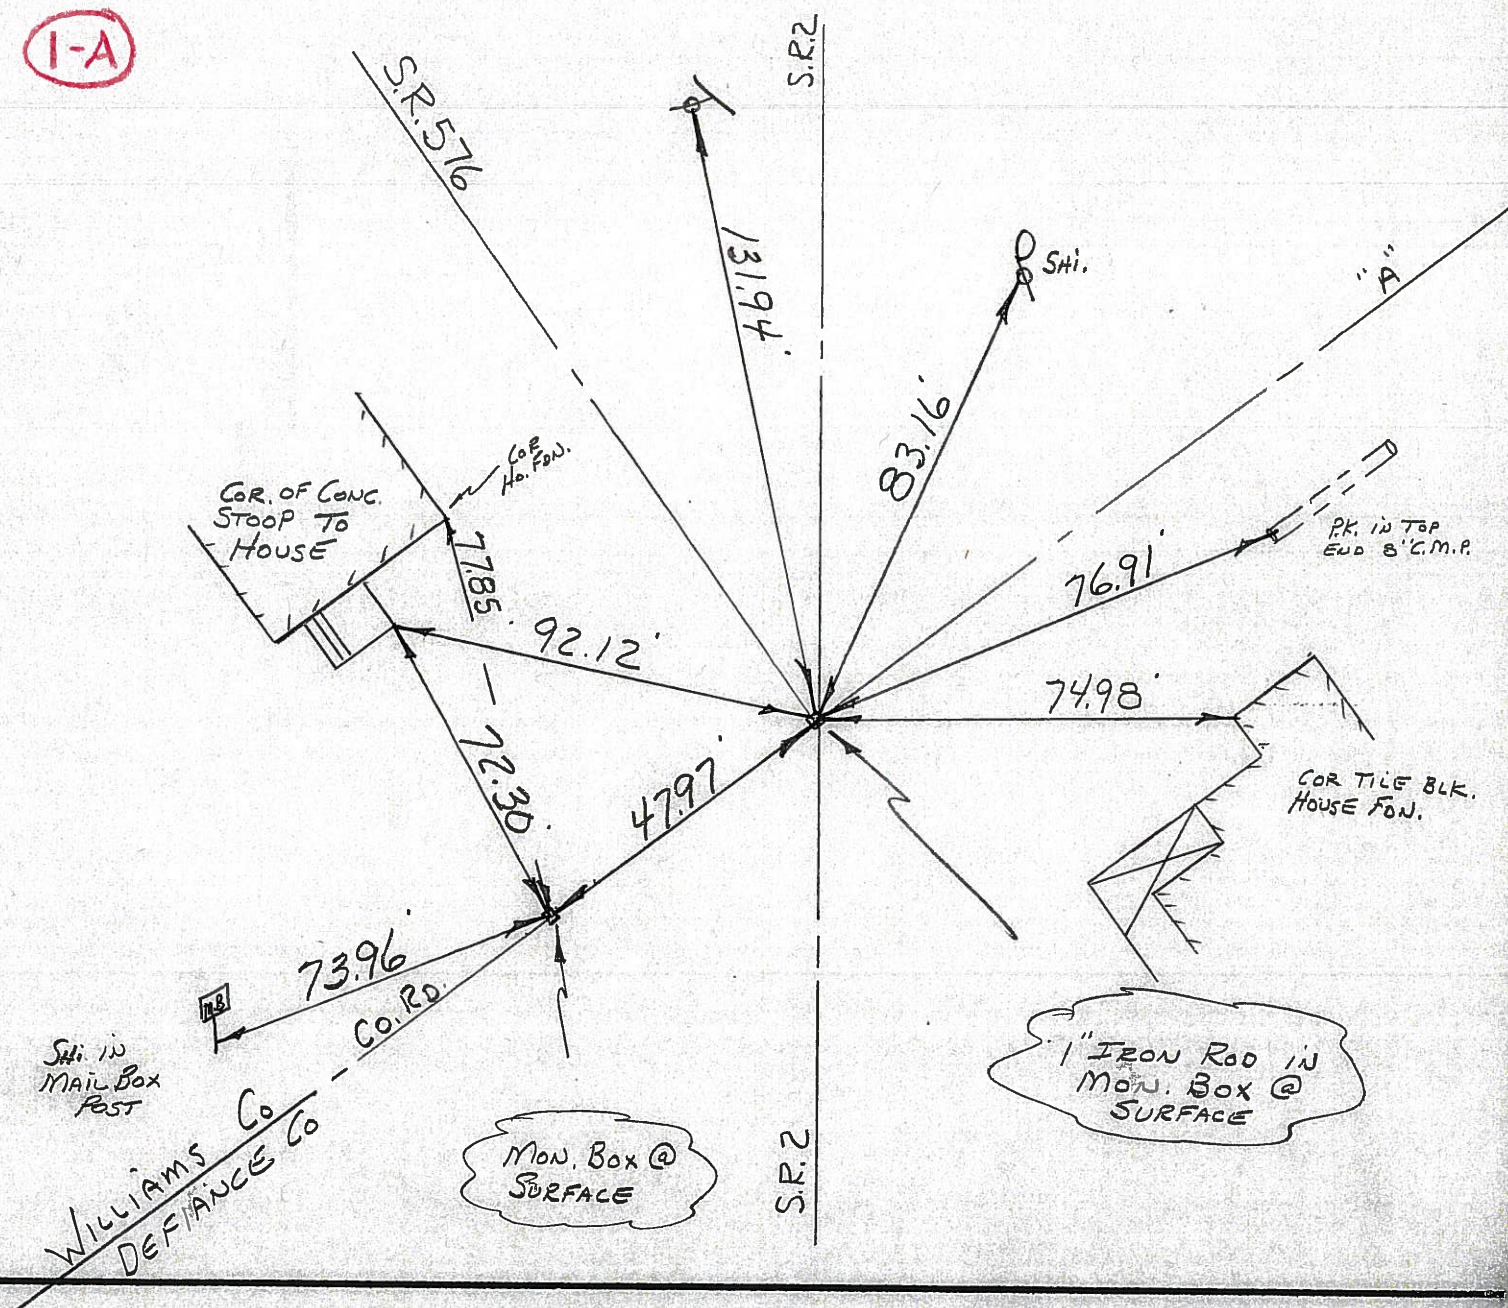 1-A
S.R.576
S.R.2
131.94'
SHI.
"A"
83.16'
COR.
HO. FDN.
COR. OF CONC.
STOOP TO
HOUSE
77.85'
92.12'
76.91'
P.K. IN TOP
END 8" C.M.P.
74.98'
72.30'
47.97'
COR TILE BLK.
HOUSE FDN.
73.96'
CO. RD.
M.B
SHI. IN
MAIL BOX
POST
WILLIAMS CO
DEFIANCE CO
MON. BOX @
SURFACE
S.R.2
1" IRON ROD IN
MON. BOX @
SURFACE